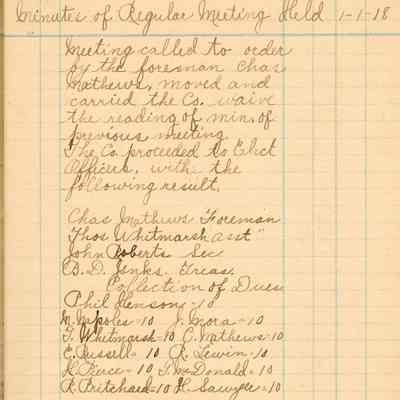 Minutes of Regular Meeting Held 1-1-18
Meeting called to order
by the foreman Chas
Mathews, moved and
carried the Co. waive
the reading of min. of
previous meeting.
The Co. proceeded to Elect
Officers, with the
following result.
Chas Mathews Foreman
Thos Whitmarsh asst "
John Roberts Sec
B. D. Jenks. Treas.
Collection of Dues
Phil Henson - 10
N. - 10 J. Mora - 10
T. Whitmarsh - 10 C. Mathews - 10
E. Russell - 10 R. Lewin - 10
K. Pierce - 10 T. McDonald - 10
R. Pritchard - 10 H. Sawyer - 10